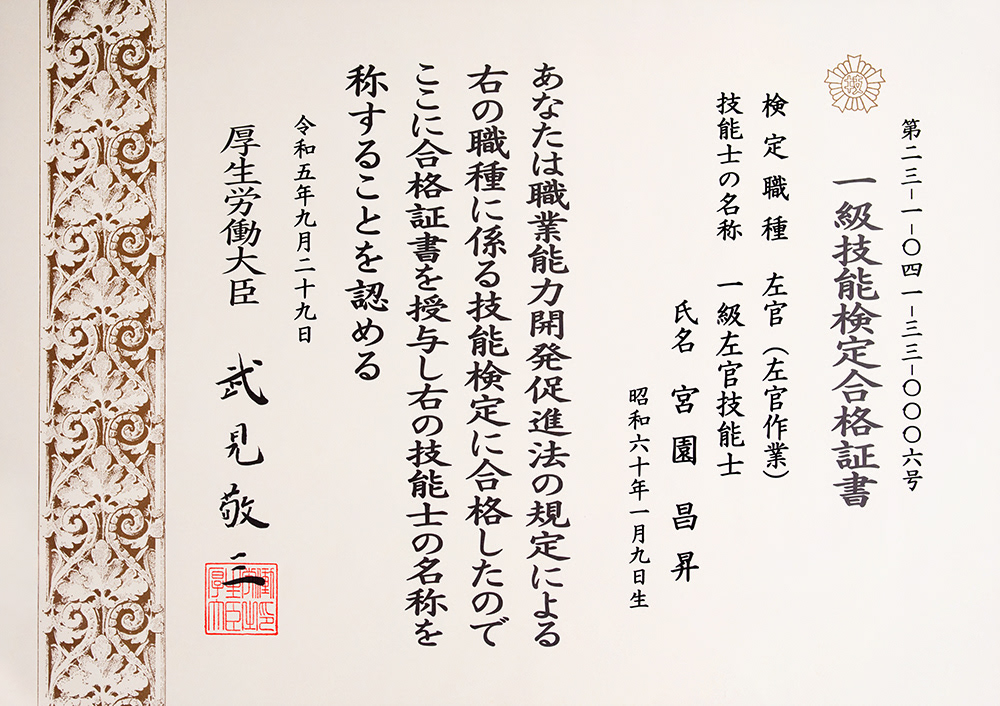 第二三－一－〇四一－三三－〇〇〇六号
一級技能検定合格証書
検定職種 左官（左官作業）
技能士の名称 一級左官技能士
氏名 宮園昌昇
昭和六十年一月九日生
あなたは職業能力開発促進法の規定による
右の職種に係る技能検定に合格したので
ここに合格証書を授与し右の技能士の名称を
称することを認める
令和五年九月二十九日
厚生労働大臣 武見敬三